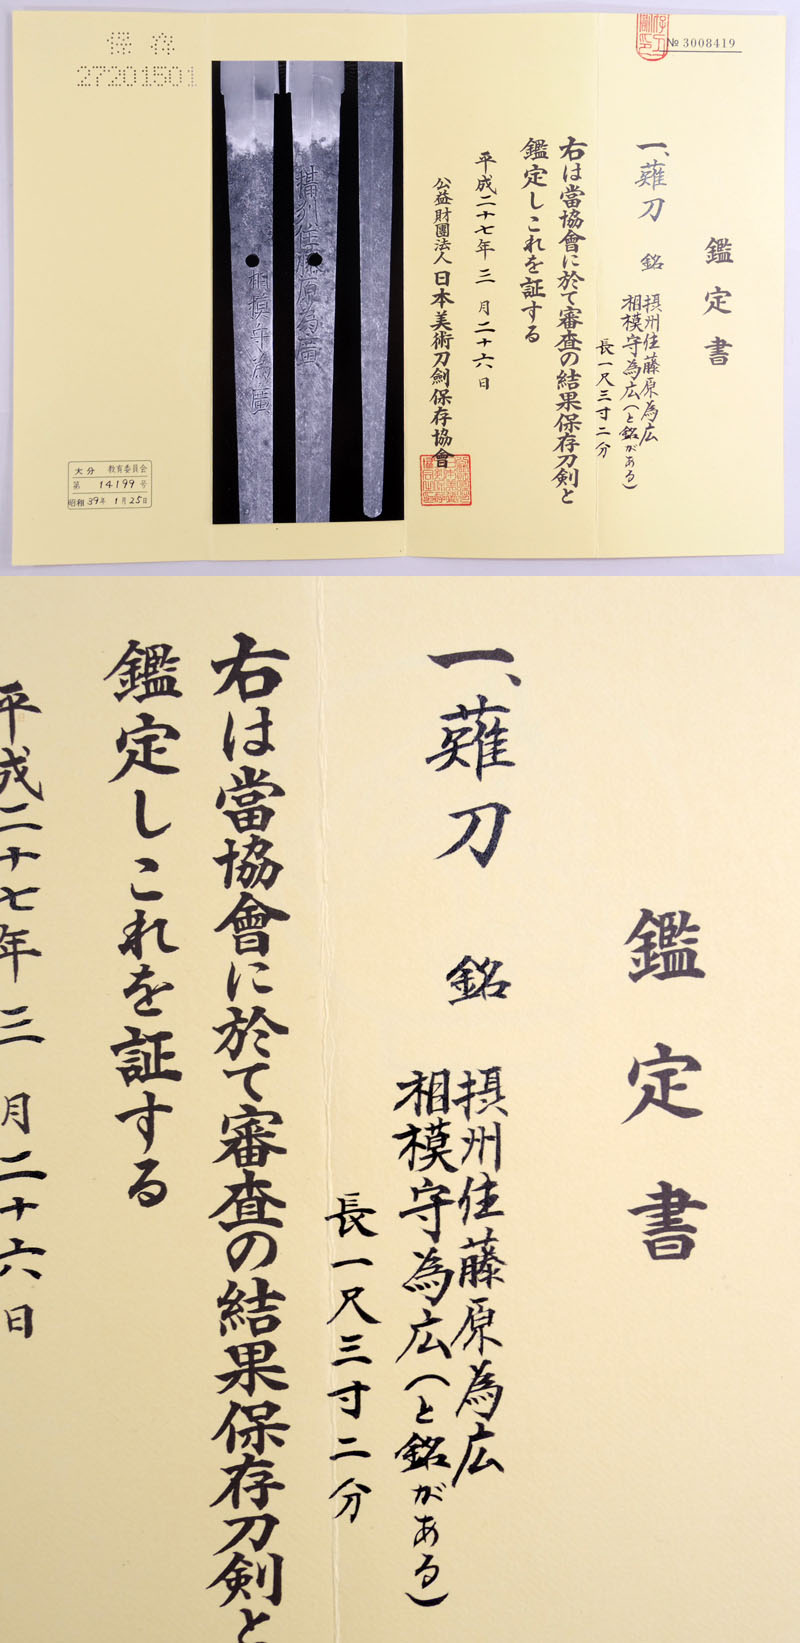 № 3008419
鑑定書
一、薙刀 銘 摂州住藤原為広
相模守為広(と銘がある)
長一尺三寸二分
右は當協會に於て審査の結果保存刀剣と
鑑定しこれを証する
平成二十七年 三 月二十六日
公益財團法人 日本美術刀劍保存協會
摂州住藤原為廣
相模守為廣
保存
27201501
大分 教育委員会
第 14199 号
昭和 39年 1月 25日
鑑定書
一、薙刀 銘 摂州住藤原為広
相模守為広(と銘がある)
長一尺三寸二分
右は當協會に於て審査の結果保存刀剣と
鑑定しこれを証する
平成二十七年 三 月二十六日